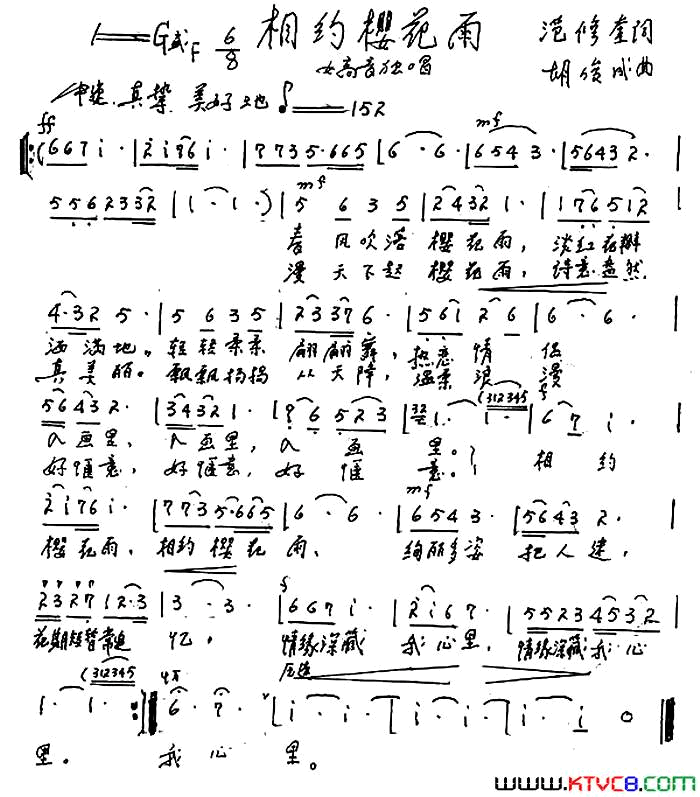 1=G或F 6/8 相约樱花雨 范修奎词
女高音独唱 胡俊成曲
真挚 美好地 ♪=152
ff mf
(6 6 7 i · | 2 i 7 6 i · | 7 7 3 5 · 6 6 5 | 6 · 6 · | 6 5 4 3 · | 5 6 4 3 2 ·
mf
5 5 6 2 3 3 2 | 1 · 1 · ) | 5 6 3 5 | 2 4 3 2 1 · | 1 7 6 5 1 2
春 风吹落 樱花雨，淡红花瓣
漫 天下起 樱花雨，诗意盎然
4 · 3 2 5 · | 5 6 3 5 | 2 3 3 7 6 · | 5 6 1 2 6 | 6 · 6 · |
洒满地。轻轻柔柔 翩翩舞，热恋情侣
真美丽。飘飘扬扬 从天降，温柔浪漫
(312345 f
5 6 4 3 2 · | 3 4 3 2 1 · | 6 5 2 3 | 1 · 1 · | 6 7 i · |
入画里，入画里，入画里。 相约
好惬意，好惬意，好惬意。
mf
2 i 7 6 i · | 7 7 3 5 · 6 6 5 | 6 · 6 · | 6 5 4 3 · | 5 6 4 3 2 · |
樱花雨，相约樱花雨，绚丽多姿 把人迷，
f
2 3 2 7 1 2 · 3 | 3 · 3 · | 6 6 7 i · | 2 i 6 7 · | 5 5 2 3 4 5 3 2 |
花期短暂常追忆。情缘深藏 我心里，情缘深藏我心
(312345
i · i · :| 6 · 7 · | i · i · | i · i · | i · i · | i · i 0 ||
里。 我心里。
www.KTVC8.com